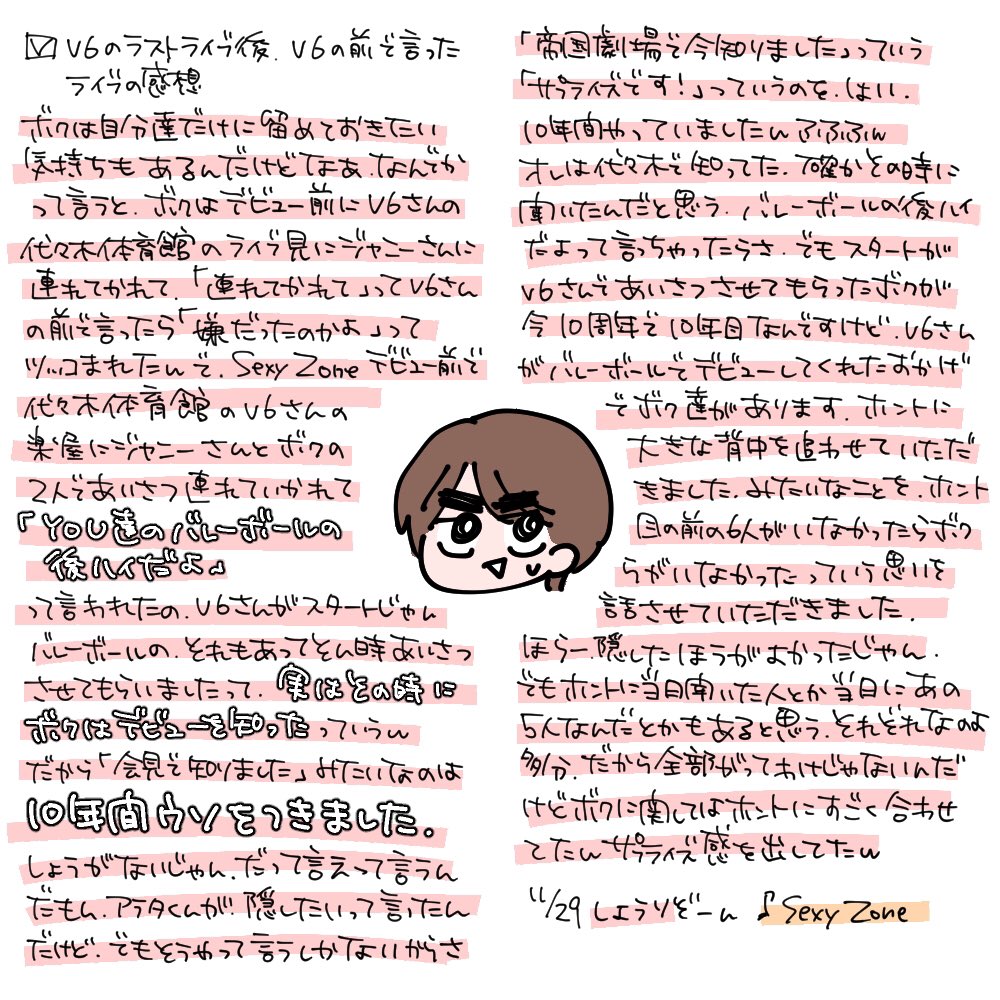 ☑V6のラストライブ後、V6の前で言った
ライブの感想
ボクは自分達だけに留めておきたい
気持ちもあるんだけどなぁ、なんでか
って言うと、ボクはデビュー前にV6さんの
代々木体育館のライブ見にジャニーさんに
連れてかれて、「連れてかれて」ってV6さん
の前で言ったら「嫌だったのかよ」って
ツッコまれたんで、Sexy Zoneデビュー前で
代々木体育館のV6さんの
楽屋にジャニーさんとボクの
2人であいさつ連れていかれて
「YOU達のバレーボールの
後ハイだよ〜
って言われたの、V6さんがスタートじゃん
バレーボールの、それもあってそん時あいさつ
させてもらいましたって、実はその時に
ボクはデビューを知ったっていうw
だから「会見で知りました」みたいなのは
10年間ウソをつきました。
しょうがないじゃん、だって言えって言うん
だもん、アラタくんが!隠したいって言ったん
だけど、でもそうやって言うしかないからさ
「帝国劇場で今知りました」っていう
「サプライズです!」っていうのを、はい、
10年間やっていましたwふふふw
オレは代々木で知ってた、確かその時に
聞いたんだと思う、バレーボールの後ハイ
だよって言っちゃったらさ、でもスタートが
V6さんであいさつさせてもらったボクが
今10周年で10年目なんですけど、V6さん
がバレーボールでデビューしてくれたおかげ
でボク達があります、ホントに
大きな背中を追わせていただ
きました、みたいなことを、ホント
目の前の6人がいなかったらボク
らがいなかったっていう思いを
話させていただきました、
ほらー、隠したほうがよかったじゃん、
でもホントに当日聞いた人とか当日にあの
5人なんだとかもあると思う、それぞれなのよ
多分、だから全部がってわけじゃないんだ
けどボクに関してはホントにすごく合わせ
てたwサプライズ感を出してたw
11/29しょうりぞーん ♪Sexy Zone